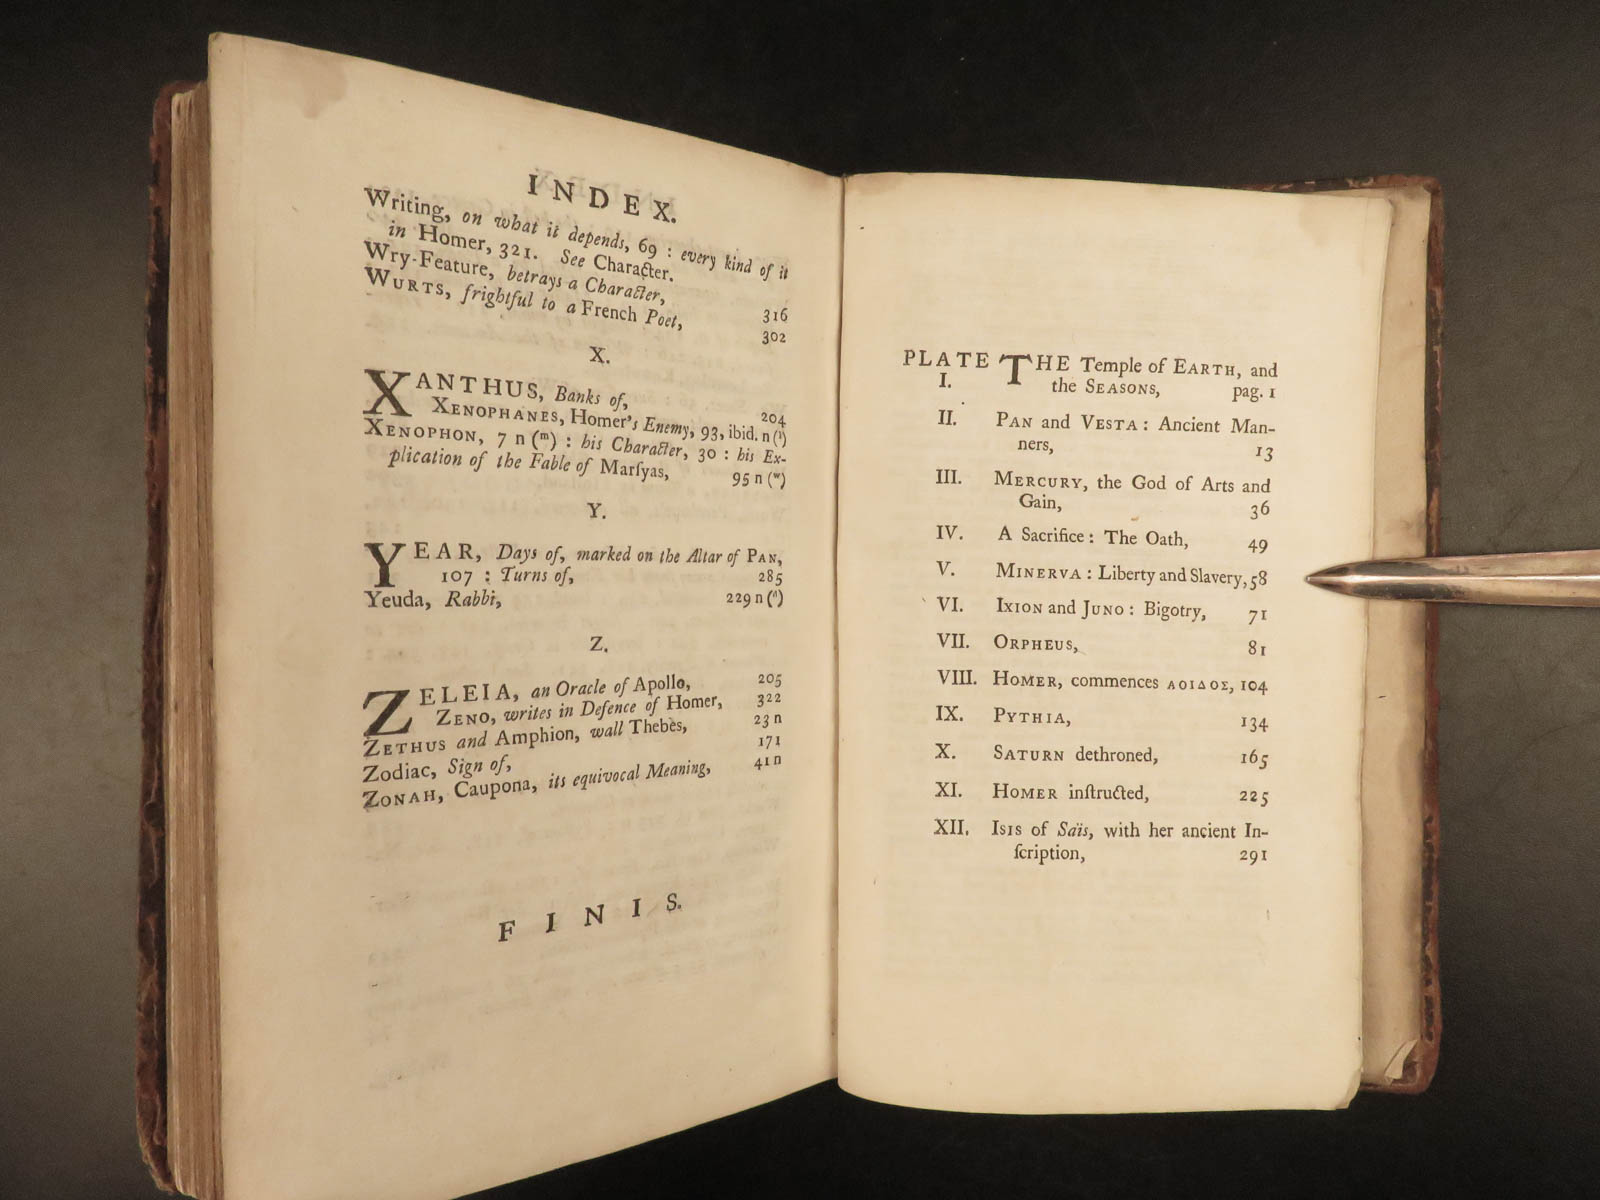 INDEX.
Writing, on what it depends, 69 : every kind of it
in Homer, 321. See Character.
Wry-Feature, betrays a Character, 316
WURTS, frightful to a French Poet, 302
X.
XANTHUS, Banks of, 204
XENOPHANES, Homer's Enemy, 93, ibid. n (i)
XENOPHON, 7 n (m) : his Character, 30 : his Ex-
plication of the Fable of Marſyas, 95 n (w)
Y.
YEAR, Days of, marked on the Altar of PAN,
107 : Turns of, 285
Yeuda, Rabbi, 229 n (n)
Z.
ZELEIA, an Oracle of Apollo, 205
ZENO, writes in Defence of Homer, 322
ZETHUS and Amphion, wall Thebes, 23 n
Zodiac, Sign of, 171
ZONAH, Caupona, its equivocal Meaning, 41 n
FINIS.
PLATE I. THE Temple of EARTH, and
the SEASONS, pag. 1
II. PAN and VESTA : Ancient Man-
ners, 13
III. MERCURY, the God of Arts and
Gain, 36
IV. A Sacrifice : The Oath, 49
V. MINERVA : Liberty and Slavery, 58
VI. IXION and JUNO : Bigotry, 71
VII. ORPHEUS, 81
VIII. HOMER, commences ΑΟΙΔΟΣ, 104
IX. PYTHIA, 134
X. SATURN dethroned, 165
XI. HOMER inſtructed, 225
XII. ISIS of Saïs, with her ancient In-
ſcription, 291